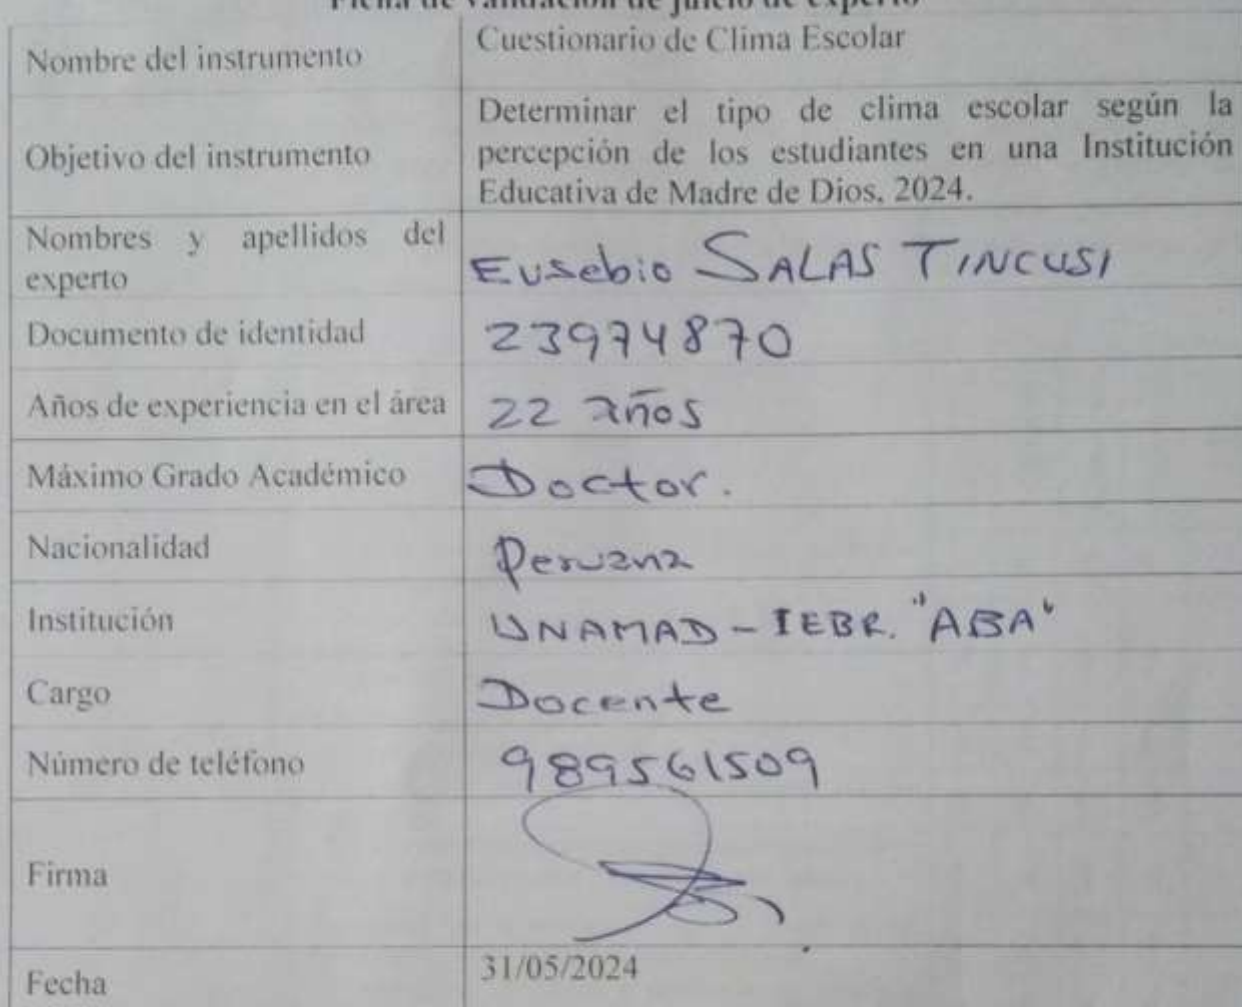 Ficha de validación de juicio de experto
Nombre del instrumento
Cuestionario de Clima Escolar
Objetivo del instrumento
Determinar el tipo de clima escolar según la
percepción de los estudiantes en una Institución
Educativa de Madre de Dios, 2024.
Nombres y apellidos del
experto
Eusebio SALAS TINCUSI
Documento de identidad
23974870
Años de experiencia en el área
22 años
Máximo Grado Académico
Doctor.
Nacionalidad
Peruana
Institución
UNAMAD - IEBR. "ABA"
Cargo
Docente
Número de teléfono
989561509
Firma
Fecha
31/05/2024